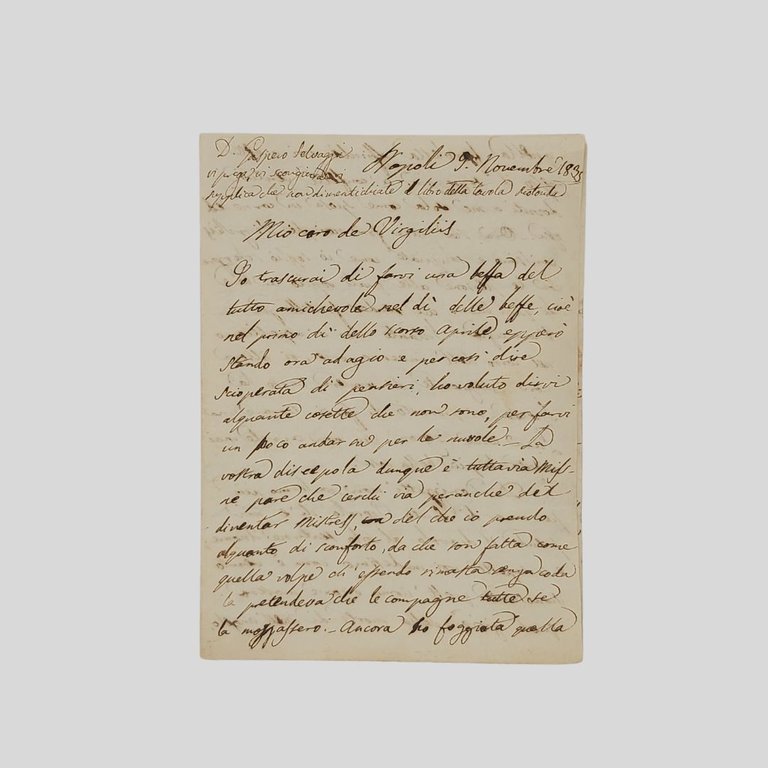 D. Gaspero Selvaggi
vi prega, vi scongiura, vi
supplica che non dimentichiate il libro della tavola rotonda
Napoli 9. Novembre 183
Mio caro de Virgiliis
Io trascurai di farvi una beffa del
tutto amichevole nel dì delle beffe, cioè
nel primo dì dello scorso Aprile, epperò
stando ora adagio e per così dire
scioperata di pensieri, ho voluto dirvi
alquante cosette che non sono, per farvi
un poco andar su per le nuvole. La
vostra discepola dunque è tuttavia Miss
nè pare che cerchi via peranche del
diventar Mistress, del che io prendo
alquanto di sconforto, da che son fatta come
quella volpe ch'essendo rimasta senza coda
la pretendeva che le compagne tutte se
la mozzassero. - Ancora ho foggiata quella